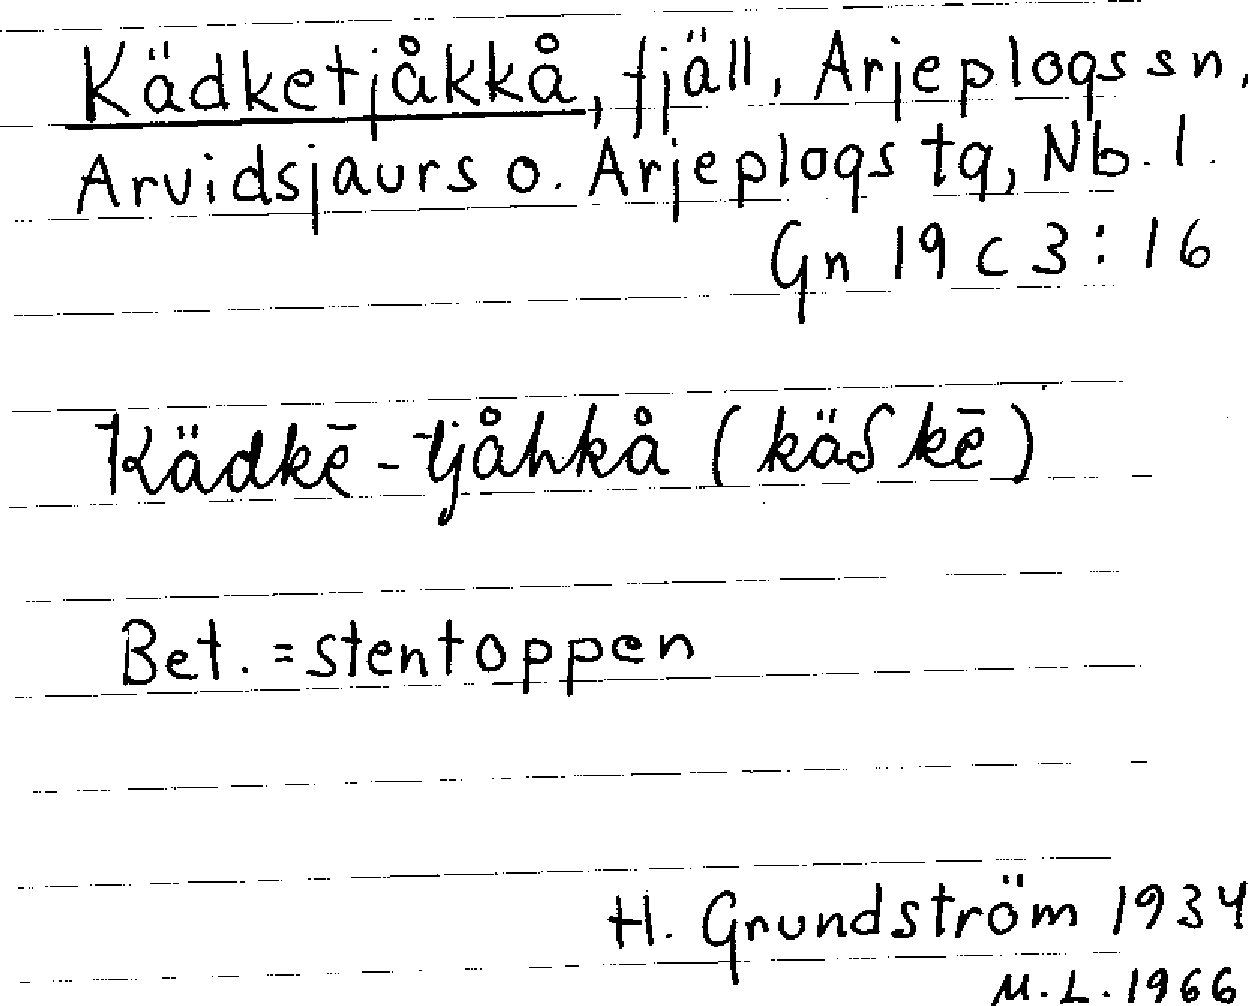 Kädketjåkkå, fjäll, Arjeplogs sn,
Arvidsjaurs o. Arjeplogs tg, Nb. l.
Gn 19 c 3:16
Kädkē-tjåhkå (käδkē)
Bet. = stentoppen
H. Grundström 1934
M.L. 1966